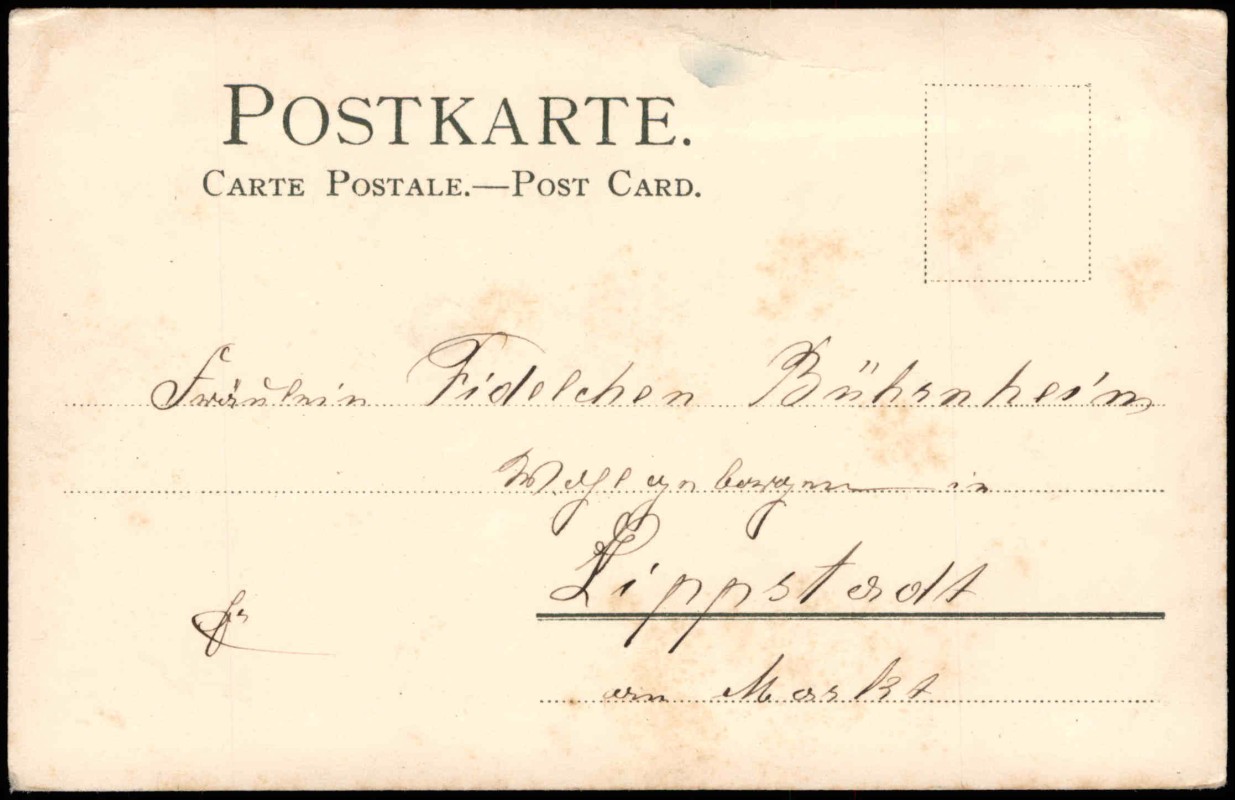 POSTKARTE.
CARTE POSTALE.—POST CARD.
Fräulein Fidelchen Bührnheim
Wohlgeboren in
Lippstadt
fr
am Markt